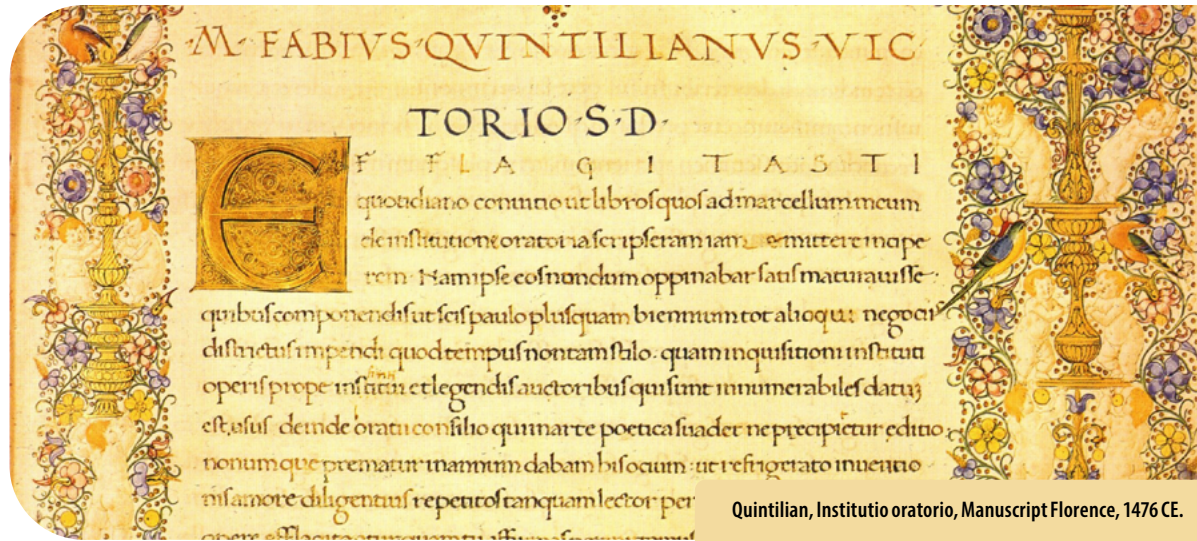 M·FABIVS·QVINTILIANVS·VIC
TORIO·S·D·
EFFLAGITASTI
quotidiano conuitio ut libros quos ad marcellum meum
de institutione oratoria scripseram iam emittere incipe
rem. Nam ipse eos nundum oppinabar satis maturauisse.
quibus componendis ut scis paulo plusquam biennium tot alioqui negociis
districtus impendi quod tempus non tam stilo. quam inquisitioni instituti
operis prope et legendis auctoribus qui sunt innumerabiles datum
est, usus deinde oratii consilio qui in arte poetica suadet ne precipietur editio
nonumque prematur in annum dabam his ocium: ut refrigerato inuentio
nis amore diligentius repetitos tanquam lector per
Quintilian, Institutio oratorio, Manuscript Florence, 1476 CE.